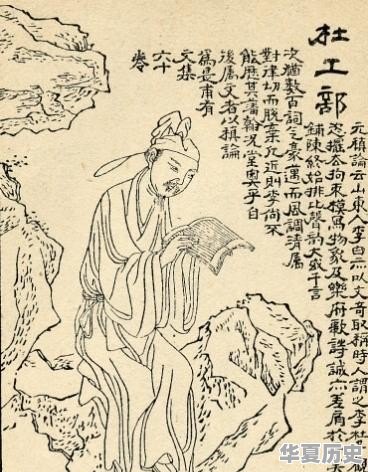 杜工部
元稹論云山東人李白亦以文奇取稱時人謂之李杜
恣擺去拘束模寫物象及樂府歌詩誠亦差肩於
鋪陳終始排比聲韵大或千言
次猶數百詞气豪邁而風調清屬
對律切而脫棄凡近則李尚不
能歷其藩翰况堂奧乎自
後屬文者以稹論
為是甫有
文集
六十
卷
华夏历史